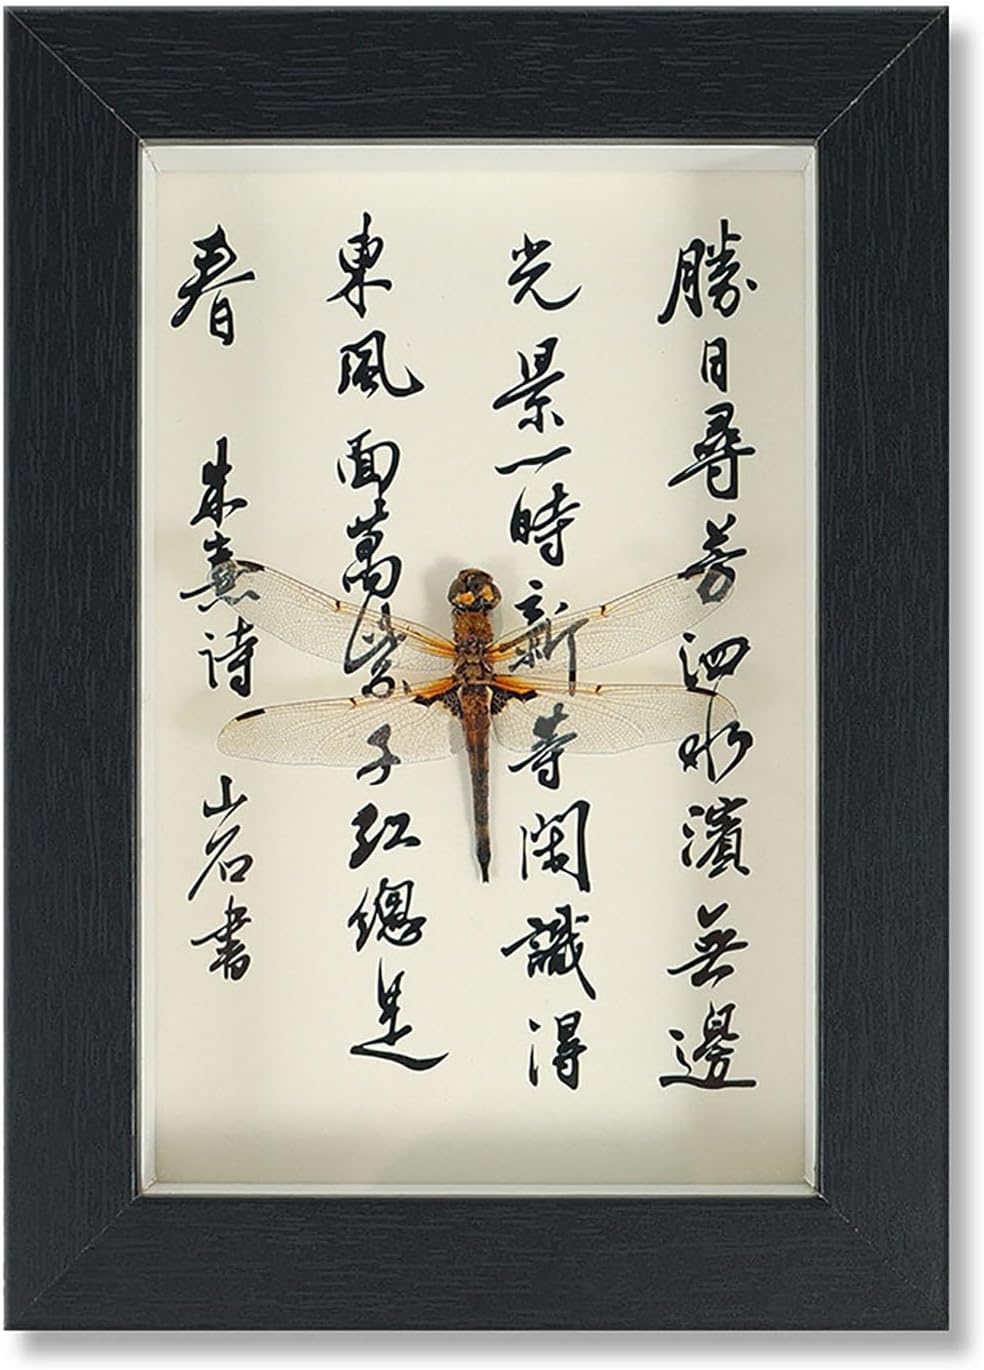 勝日尋芳泗水濱無邊
光景一時新等閑識得
東風面萬紫千紅總是
春 朱熹诗 山石書